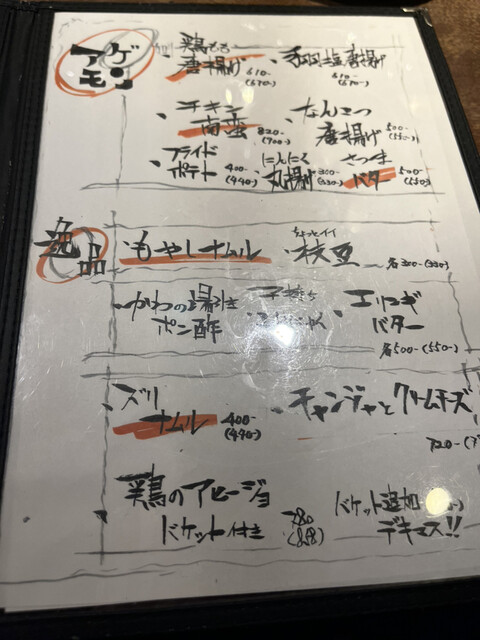 アゲモン
鶏もも
唐揚げ 610-(670-)
手羽塩唐揚げ 610-(670-)
チキン
南蛮 820-
なんこつ
唐揚げ 500-(550-)
フライド
ポテト 400-(440-)
にんにく
丸揚げ 300-(330-)
さつま
バター 500-(550-)
逸品
もやしナムル
ちょっとイイ
枝豆
各300-(330-)
かわの湯引き
ポン酢
エリンギ
バター
各500-(550-)
ズリ
ナムル 400-(440-)
チャンジャとクリームチーズ
720-
鶏のアヒージョ
バケット付き 780(858)
バケット追加
デキマス!!